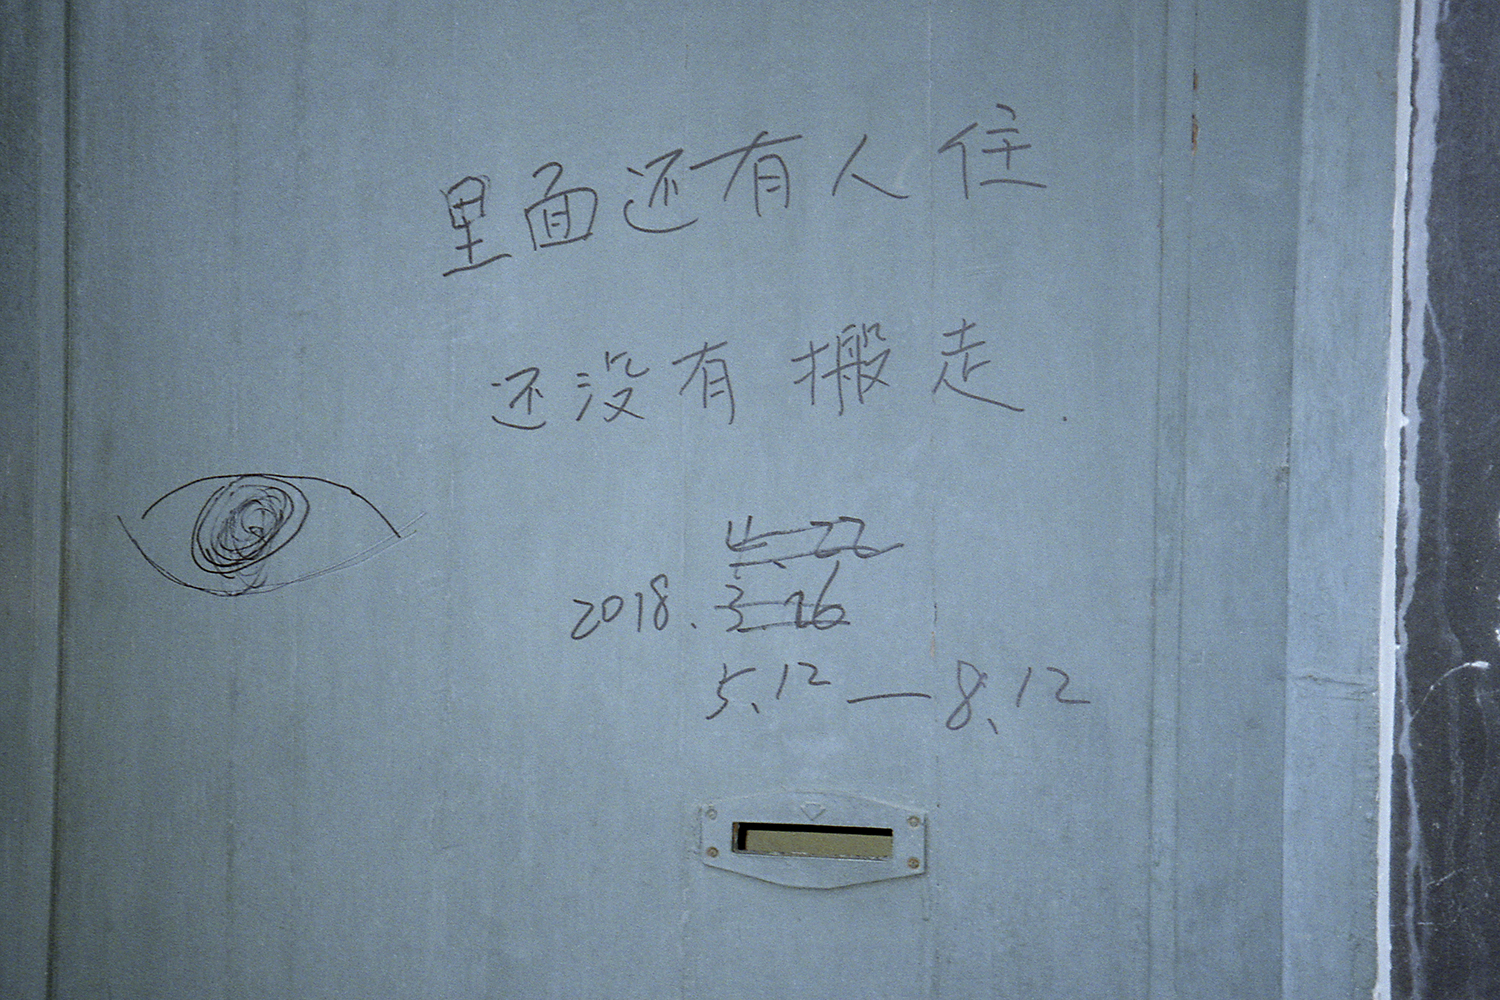 里面还有人住
还没有搬走.
4.22
2018. 3.26
5.12—8.12